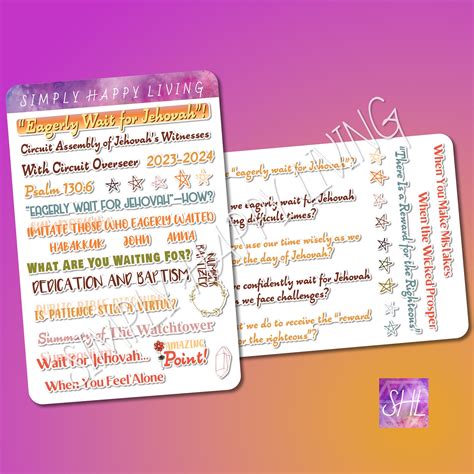 SIMPLY HAPPY LIVING
"Eagerly Wait for Jehovah"!
Circuit Assembly of Jehovah's Witnesses
With Circuit Overseer 2023-2024
Psalm 130:6
"EAGERLY WAIT FOR JEHOVAH"—HOW?
IMITATE THOSE WHO EAGERLY WAITED
HABAKKUK JOHN ANNA
WHAT ARE YOU WAITING FOR?
NUMBER BAPTIZED
DEDICATION AND BAPTISM
PUBLIC BIBLE DISCOURSE
IS PATIENCE STILL A VIRTUE?
Summary of The Watchtower
Wait for Jehovah...
AMAZING Point!
When You Feel Alone
"eagerly wait for Jehovah"
we eagerly wait for Jehovah
ing difficult times?
we use our time wisely as we
for the day of Jehovah?
we confidently wait for Jehovah
we face challenges?
t we do to receive the "reward
for the righteous"?
"There Is a Reward for the Righteous"
When the Wicked Prosper
When You Make Mistakes
SIMPLY HAPPY LIVING
SHL